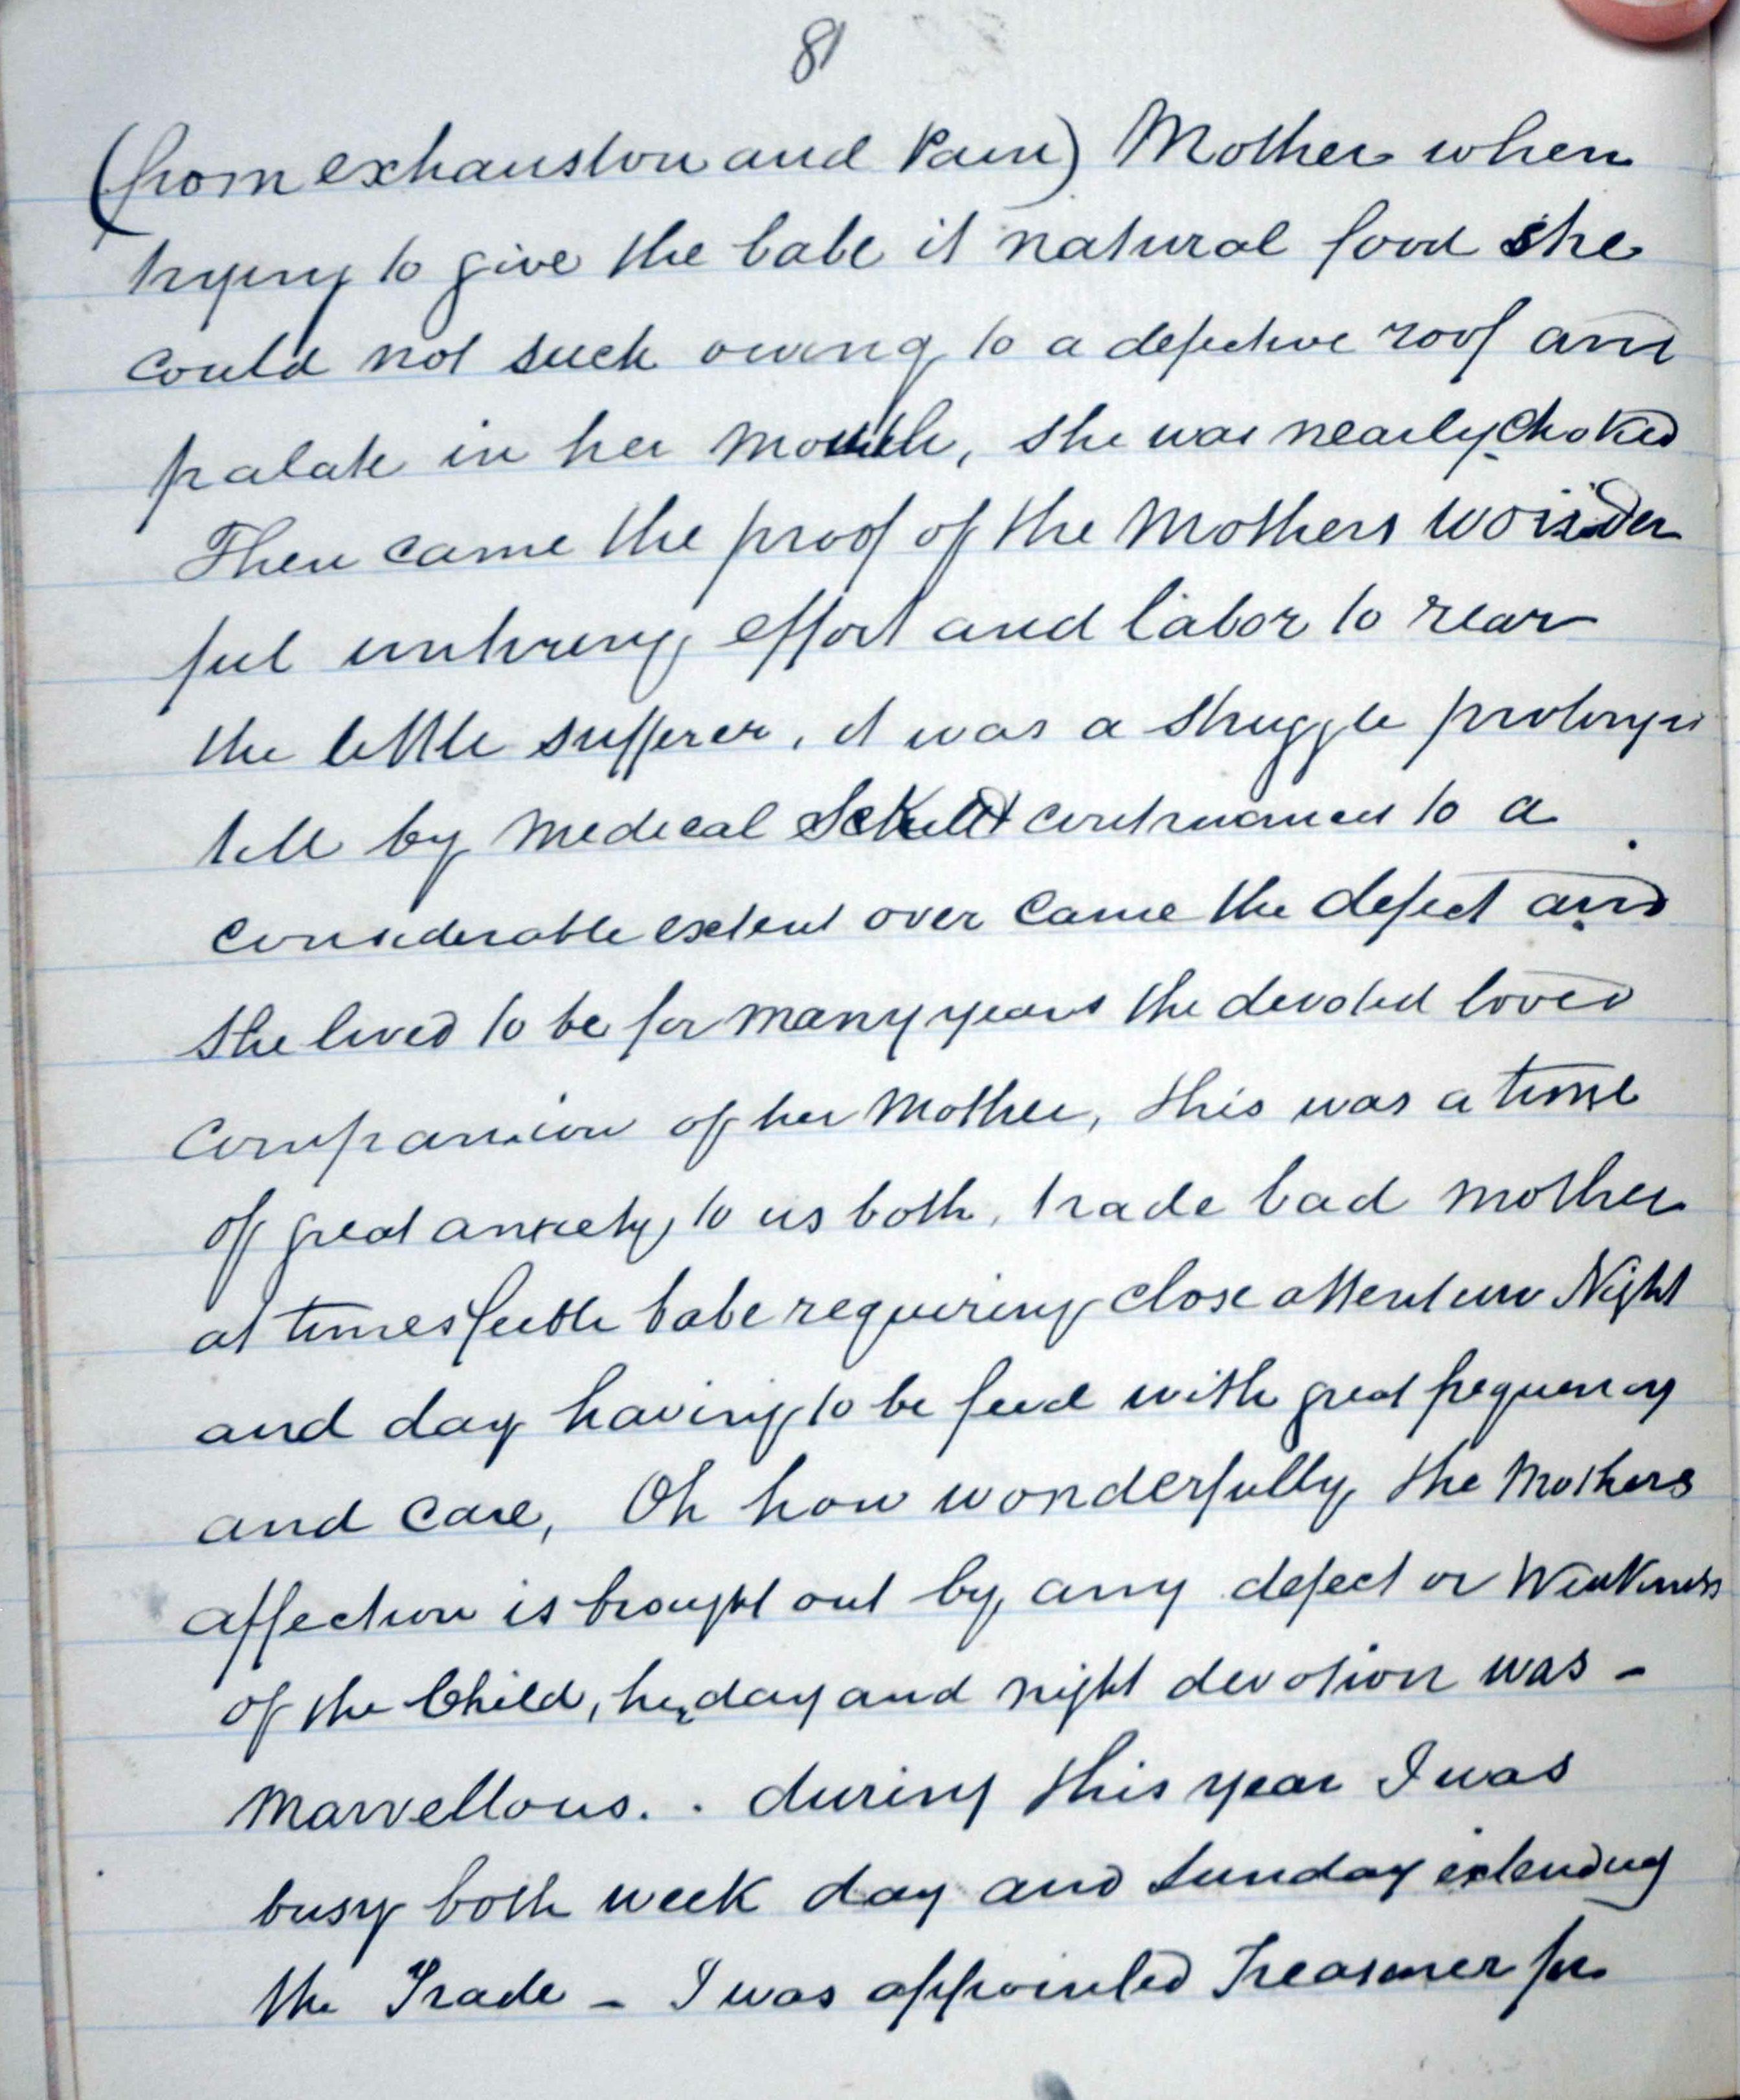 81
(from exhauston and Pain) Mother when
trying to give the babe it natural food she
could not suck owing to a defective roof and
palate in her mouth, she was nearly choked
Then came the proof of the Mothers wonder
ful untiring effort and labor to rear
the little sufferer, it was a struggle prolonged
till by Medical continuance to a
considerable extent over came the defect and
she lived to be for many years the devoted loved
Companion of her Mother, this was a time
of great anxiety to us both, trade bad mother
at times feeble babe requiring close attention Night
and day having to be feed with great frequency
and care, Oh how wonderfully the Mothers
affection is brought out by any defect or Weakness
of the Child, her day and night devotion was -
marvellous. . during this year I was
busy both week day and Sunday extending
the Trade - I was appointed Treasurer for